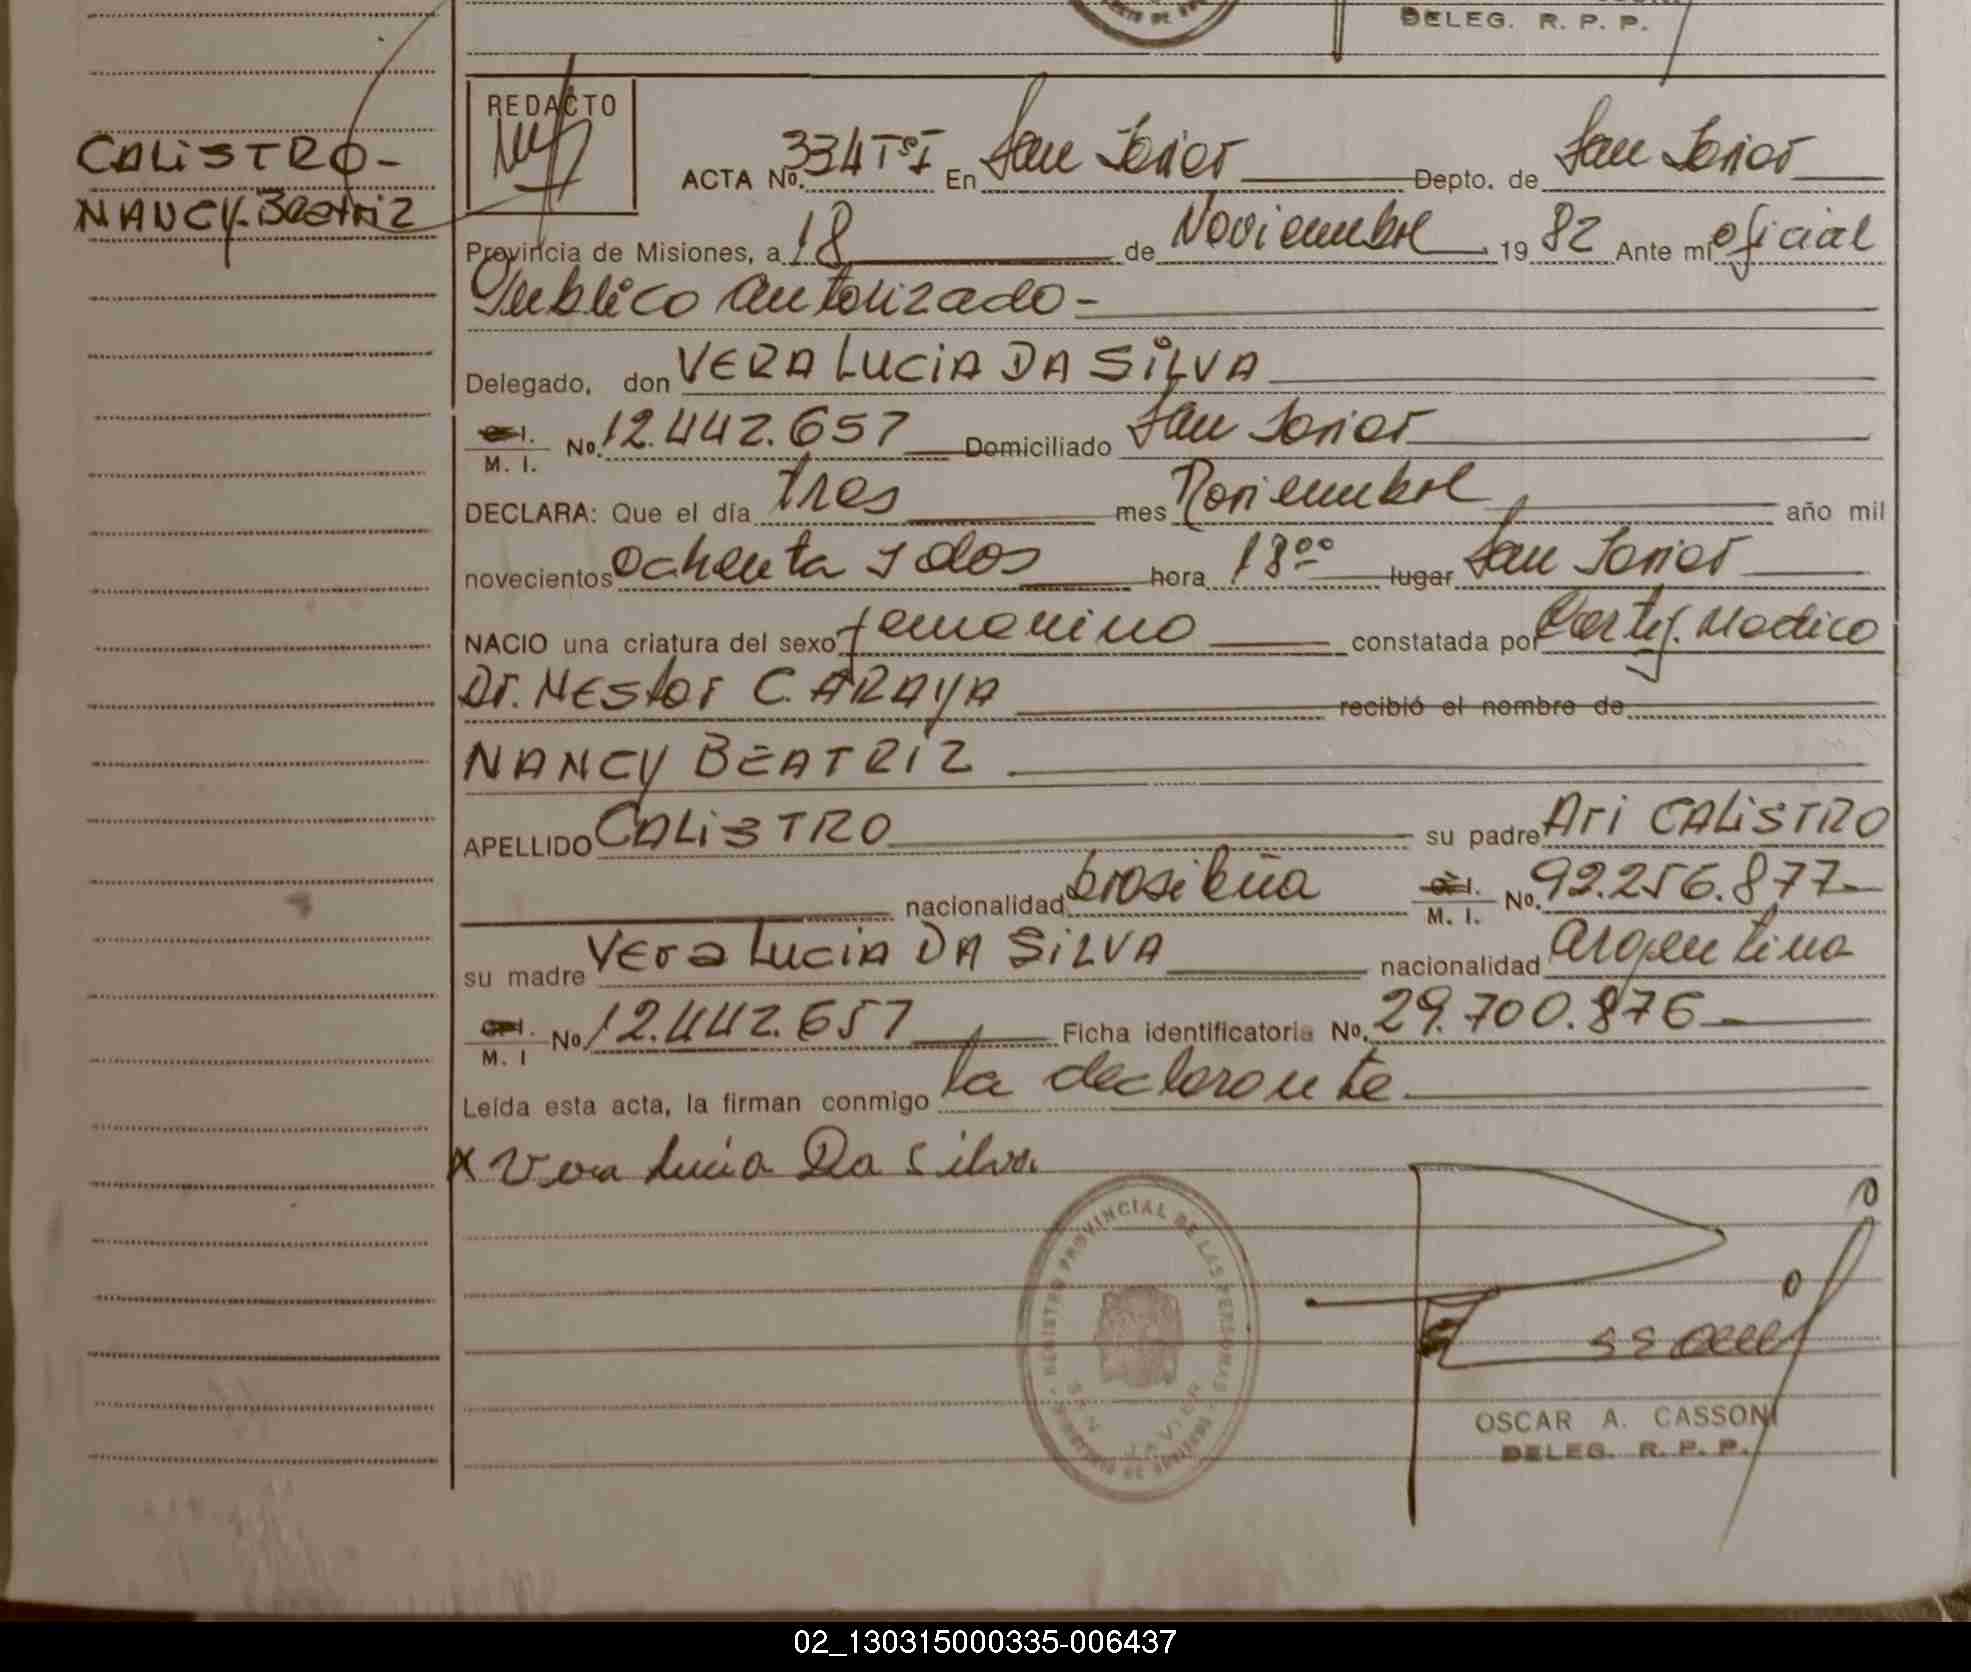 DELEG. R. P. P.
CALISTRO-
NANCY-Beatriz
REDACTO
ACTA No. 334 TºI En San Javier Depto. de San Javier
Provincia de Misiones, a 18 de Noviembre 19 82 Ante mi oficial
Publico autorizado-
Delegado, don VERA LUCIA DA SILVA
M. I. No. 12.442.657 Domiciliado San Javier
DECLARA: Que el día tres mes Noviembre año mil
novecientos ochenta y dos hora 18ºº lugar San Javier
NACIO una criatura del sexo femenino constatada por Certif. Medico
Dr. NEStor C. ARAYA recibió el nombre de
NANCY BEATRIZ
APELLIDO CALISTRO su padre Ari CALISTRO
nacionalidad brasileña M. I. No. 92.256.877-
su madre Vera Lucia DA SILVA nacionalidad argentina
M. I No 12.442.657 Ficha identificatoria No. 29.700.876-
Leída esta acta, la firman conmigo la declarante
x Vera Lucia Da Silva
REGISTRO PROVINCIAL DE LAS PERSONAS
SAN JAVIER
OSCAR A. CASSONI
DELEG. R. P. P.
02_130315000335-006437